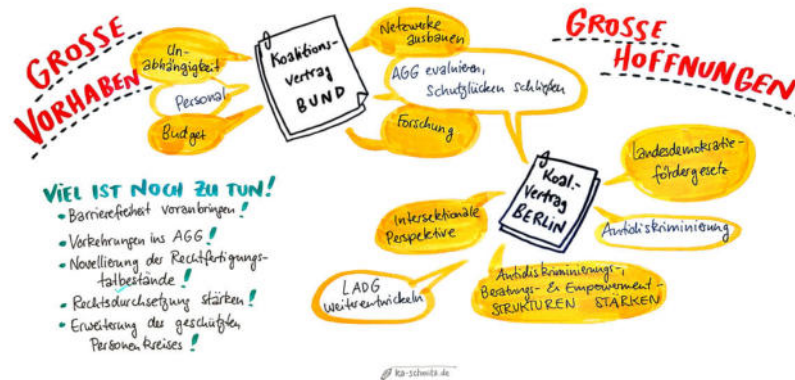 GROSSE
VORHABEN
Un-
abhängigkeit
Personal
Budget
Koalitions-
vertrag
BUND
Netzwerke
ausbauen
AGG evaluieren,
Schutzlücken schließen
Forschung
GROSSE
HOFFNUNGEN
Koal.-
Vertrag
BERLIN
Landesdemokratie-
fördergesetz
Antidiskriminierung
Intersektionale
Perspektive
LADG
weiterentwickeln
Antidiskriminierungs-,
Beratungs- & Empowerment-
STRUKTUREN STÄRKEN
VIEL IST NOCH ZU TUN!
• Barrierefreiheit voranbringen!
• Vorkehrungen ins AGG!
• Novellierung der Rechtfertigungs-
tatbestände!
• Rechtsdurchsetzung stärken!
• Erweiterung des geschützten
Personenkreises!
ka-schmitz.de